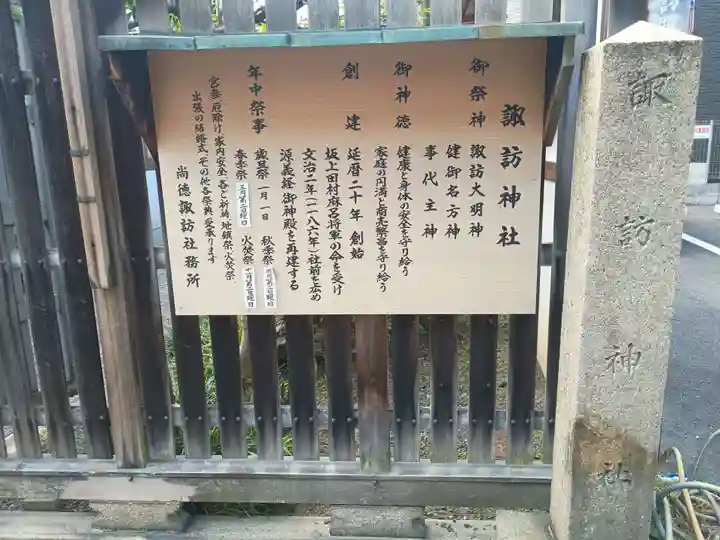 諏訪神社
御祭神 諏訪大明神
健御名方神
事代主神
御神徳 健康と身体の安全を守り給う
家庭の円満と商売繁昌を守り給う
創建 延暦二十年創始
坂上田村麻呂将軍の命を受け
文治二年(一一八六年)社前を広め
源義経御神殿を再建する
年中祭事 歳旦祭 一月一日 秋季祭
春季祭 火焚祭
宮参、厄除け、家内安全、各ご祈祷、地鎮祭、火焚祭
出張の結婚式、その他各祭典受承ります
尚徳諏訪社務所
諏訪神社